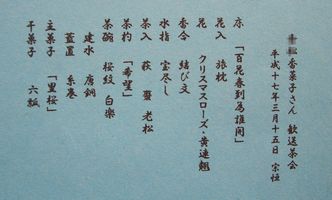 香菓子さん 歓送茶会
平成十七年三月十五日 宗恒
床 「百花春到為誰開」
花入 旅枕
花 クリスマスローズ・黄連翹
香合 結び文
水指 宝尽し
茶入 萩 棗 老松
茶杓 「希望」
茶碗 桜紋 白楽
建水 唐銅
蓋置 糸巻
主菓子 「里桜」
干菓子 六瓢